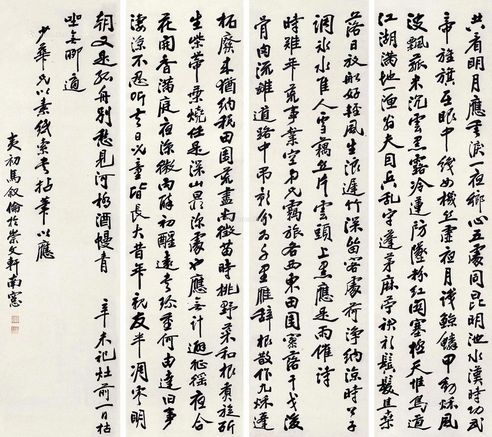 共看明月應垂淚一夜鄉心五處同昆明池水漢時功武
帝旌旗在眼中織女機絲虛夜月石鯨鱗甲動秋風
波飄菰米沉雲黑露冷蓮房墜粉紅關塞極天惟鳥道
江湖滿地一漁翁夫因兵亂守蓬茅麻苧衫鬢髮焦桑
落日放船好輕風生浪遲竹深留客處荷淨納涼時公子
調冰水佳人雪藕絲片雲頭上黑應是雨催詩
時難年荒事業空弟兄羈旅各西東田園寥落干戈後
骨肉流離道路中弔影分為千里雁辭根散作九秋蓬
柘廢來猶納稅田園荒盡尚徵苗時挑野菜和根煮旋斫
生柴帶葉燒任是深山最深處也應無計避征徭夜合
花開香滿庭夜深微雨醉初醒遠書珍重何由達舊事
淒涼不忍聽去日兒童皆長大昔年親友半凋零明
朝又是孤舟別愁見河橋酒幔青 辛未祀灶前一日枯
坐無聊適
少華兄以素紙索書拈筆以應
夷初馬叙倫於崇文軒南窗